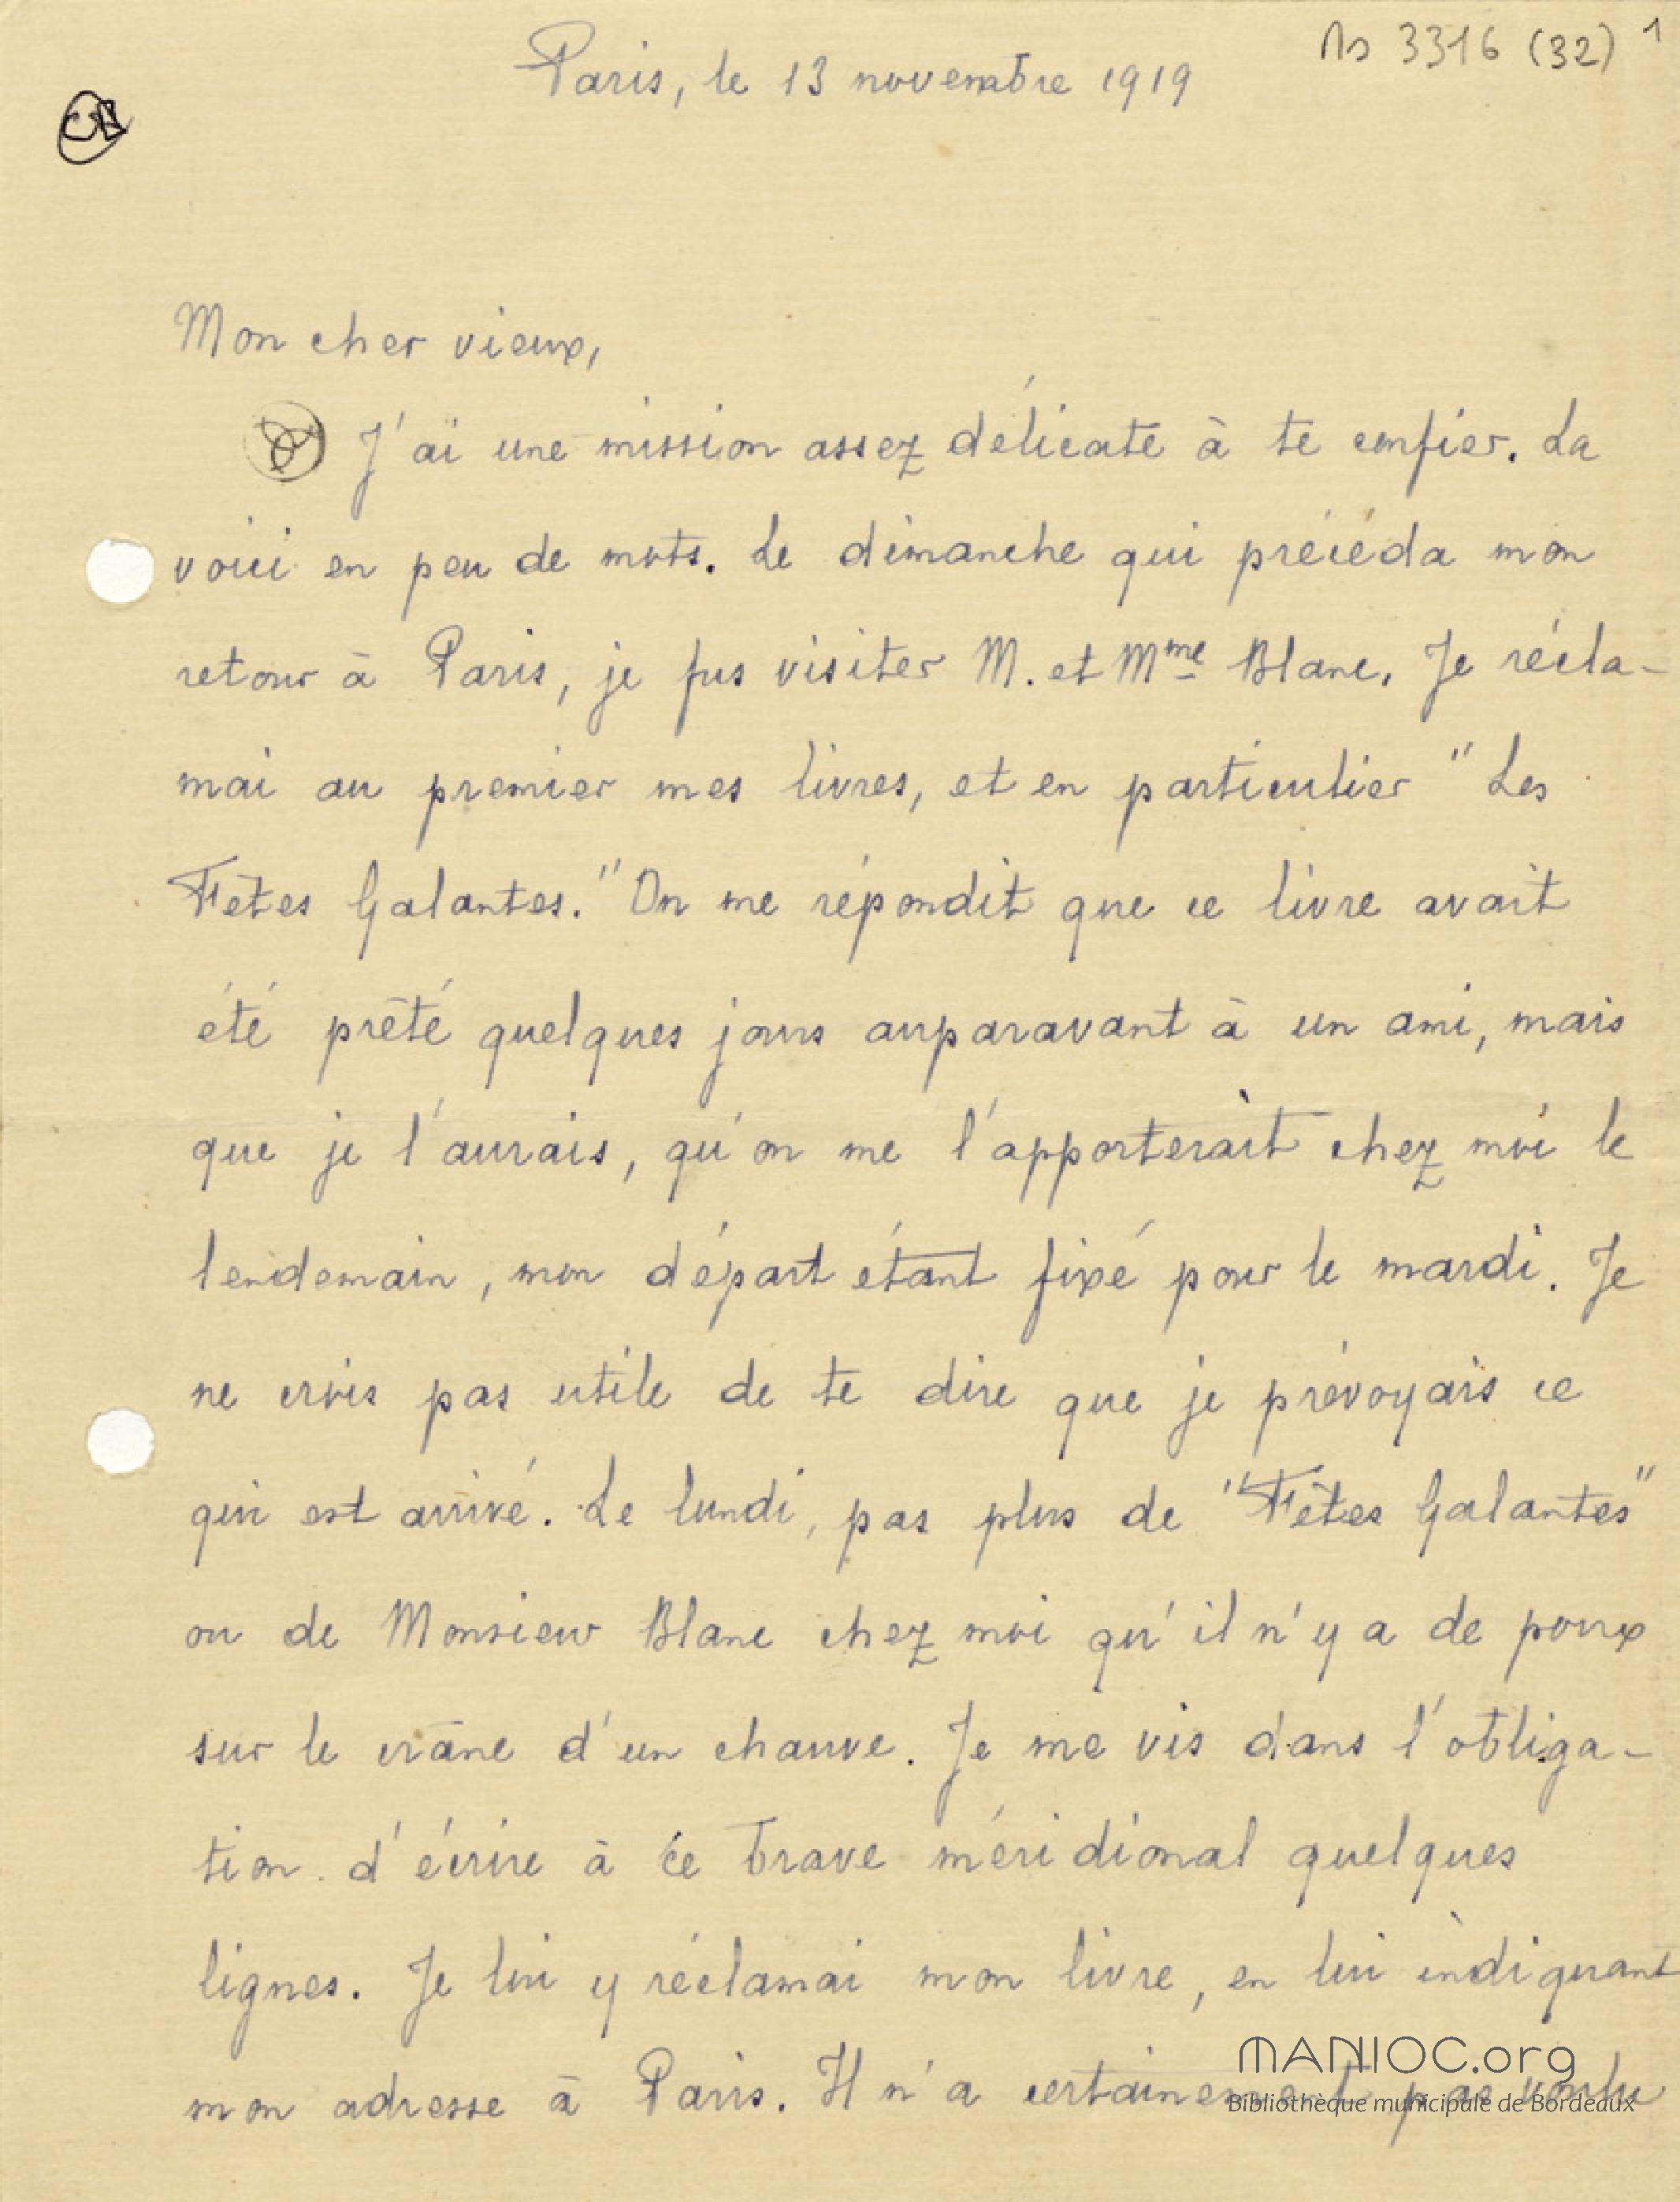 Ms 3316 (32) 1
Paris, le 13 novembre 1919
Mon cher vieux,
J'ai une mission assez délicate à te confier. La
voici en peu de mots. Le dimanche qui précéda mon
retour à Paris, je fus visiter M. et Mme Blanc. Je récla-
mai au premier mes livres, et en particulier "Les
Fêtes Galantes." On me répondit que ce livre avait
été prêté quelques jours auparavant à un ami, mais
que je l'aurais, qu'on me l'apporterait chez moi le
lendemain, mon départ étant fixé pour le mardi. Je
ne crois pas utile de te dire que je prévoyais ce
qui est arrivé. Le lundi, pas plus de "Fêtes Galantes"
ou de Monsieur Blanc chez moi qu'il n'y a de poux
sur le crâne d'un chauve. Je me vis dans l'obliga-
tion d'écrire à ce brave méridional quelques
lignes. Je lui y réclamai mon livre, en lui indiquant
mon adresse à Paris. Il n'a certainement pas voulu
MANIOC.org
Bibliothèque municipale de Bordeaux